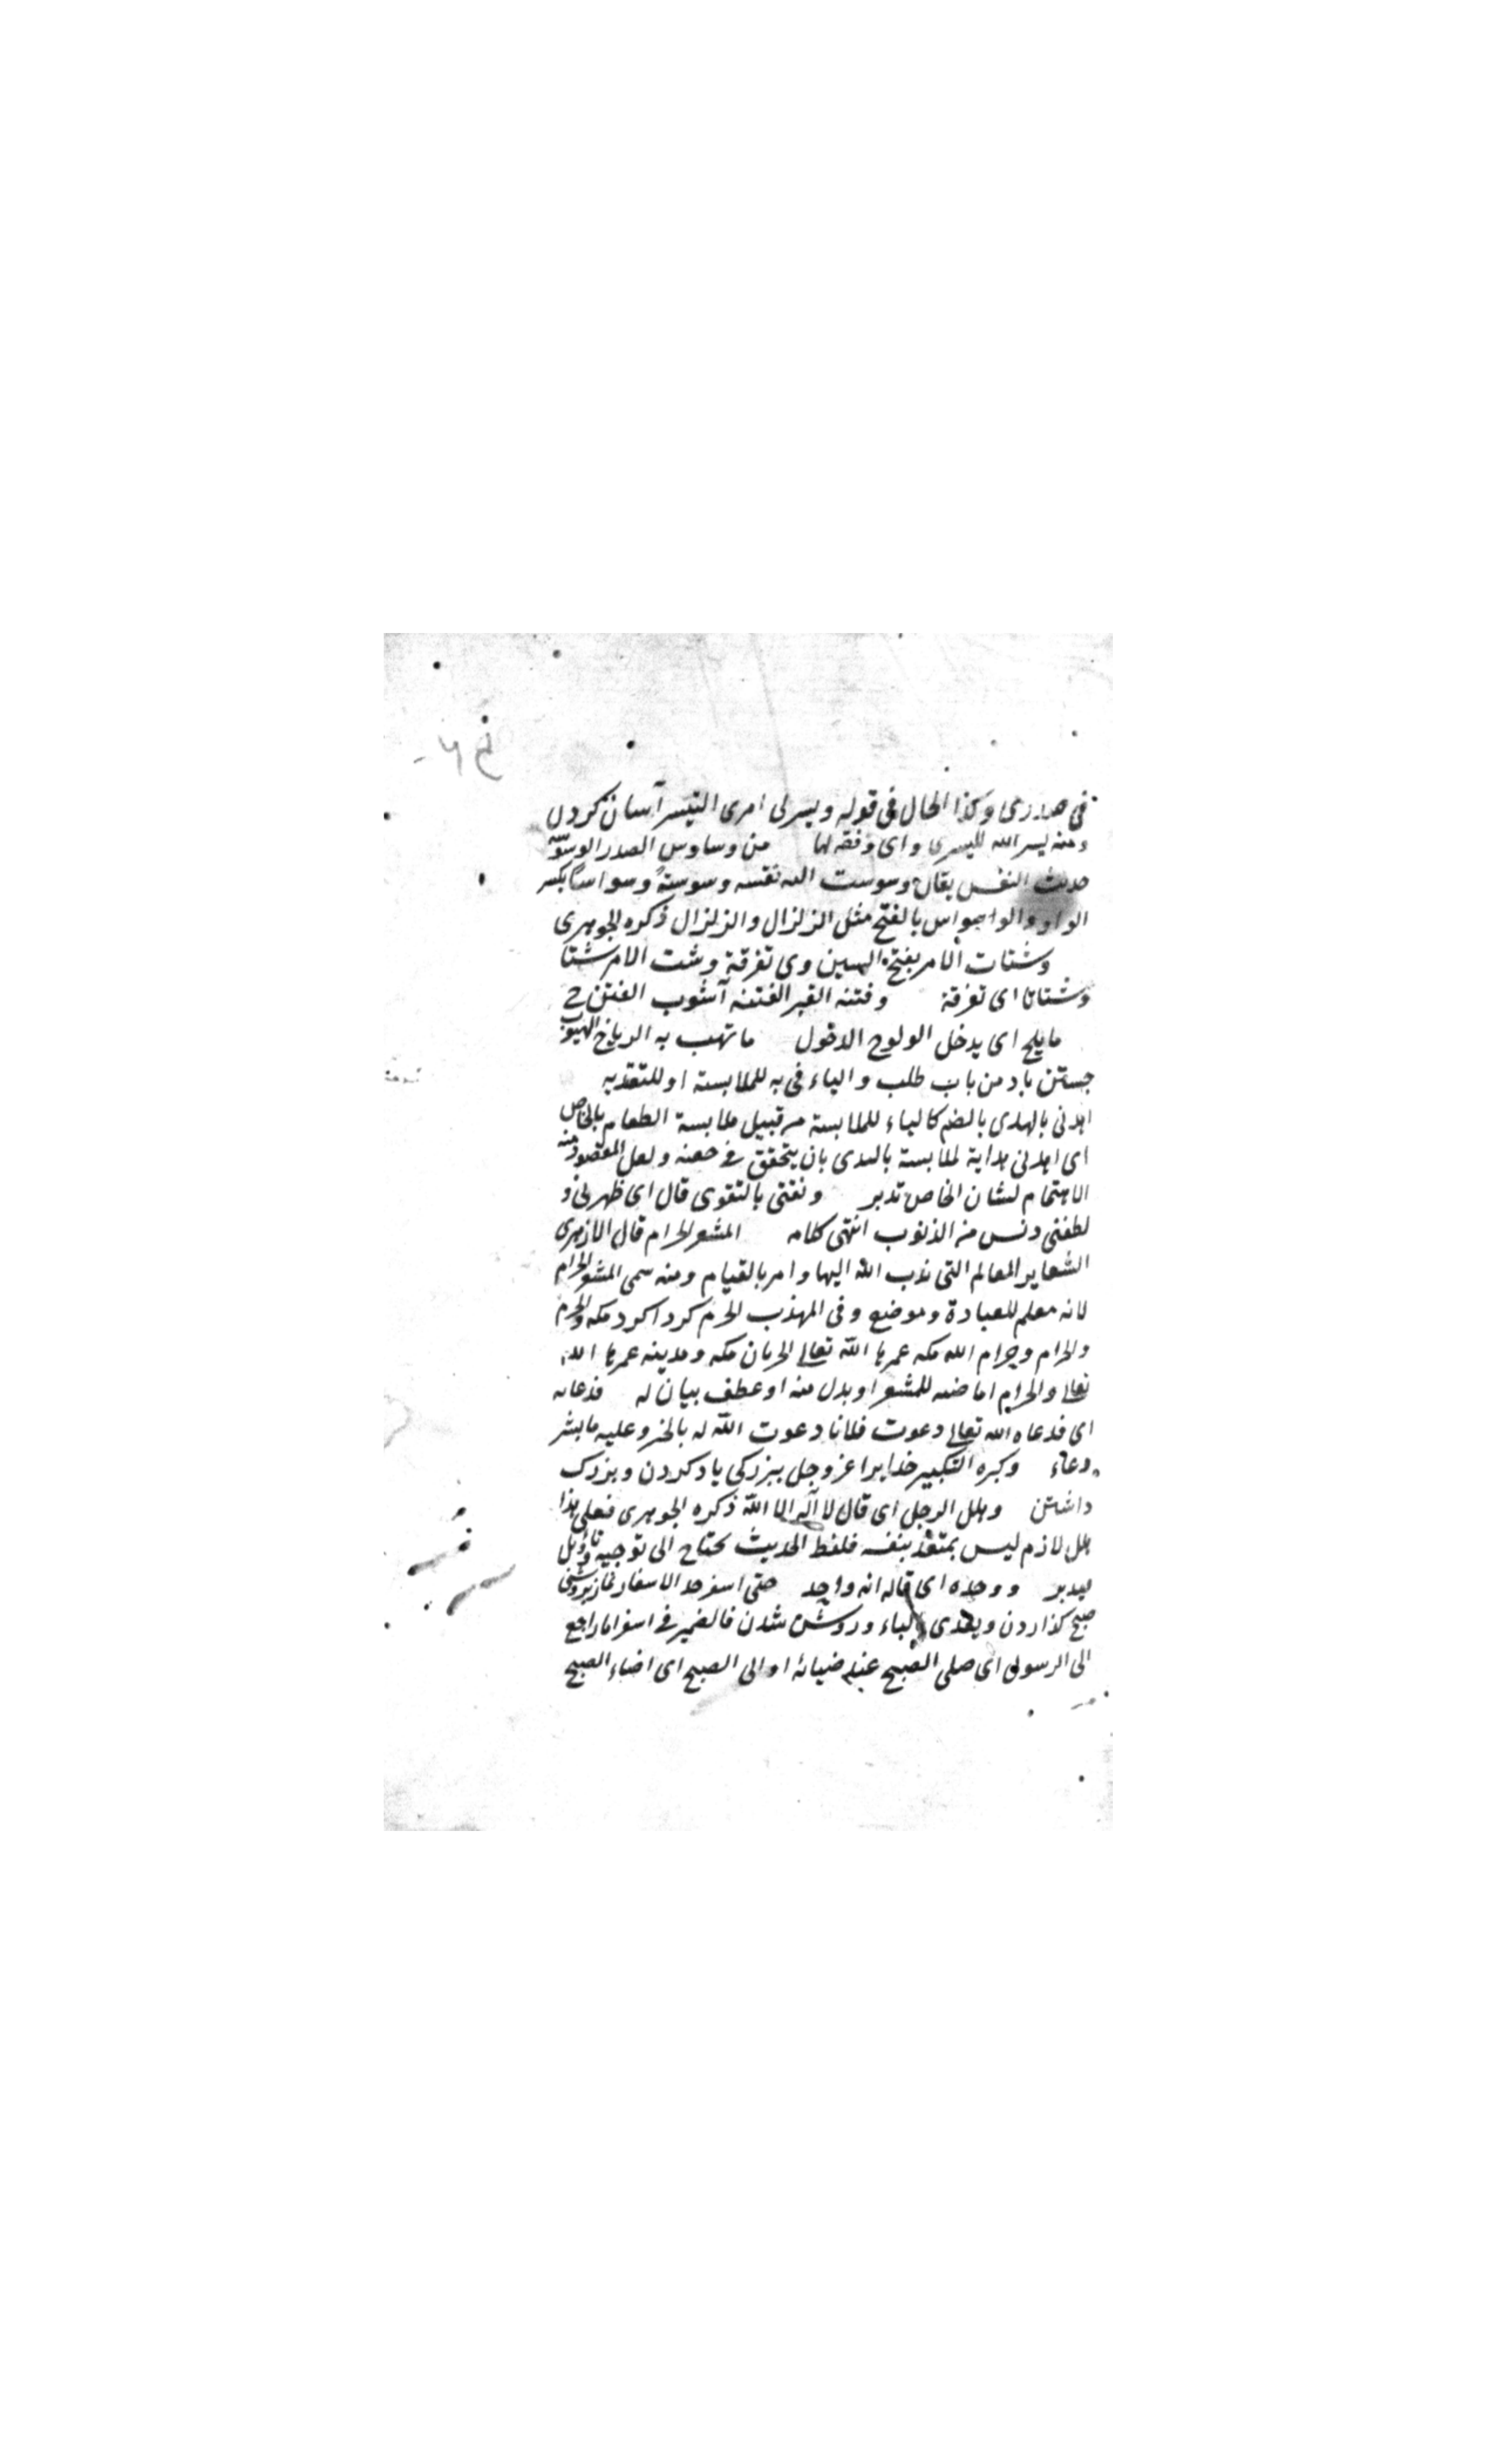 فى صدرى وكذا الحال فى قوله ويسر لى امرى التيسر آسان كردن
ومنه يسر الله لليسرى واى وفقه لها من وساوس الصدر الوسوسة
حديث النفس يقال وسوست اليه نفسه وسوسةً وسواسًا بكسر
الواو والوسواس بالفتح مثل الزلزال والزلزال ذكره الجوهرى
وشتات الامر بفتح الشين وى تفرقة وشت الامر شتا
وشتاتا اى تفرقة وفتنه القبر الفتنه آشوب الفتن ج
ما يلج اى يدخل الولوج الدخول ما تهب به الرياح الهبوب
جستن باد من باب طلب والباء فى به للملابسة او للتعديه
اهدنى بالهدى بالضم كالباء للملابسة من قبيل ملابسة الطعام بالخاص
اى اهدنى هداية لملابسة بالهدى بان يتحقق فى ضمنه ولعل المقصود منه
الاهتمام لشان الخاص تدبر ونقنى بالتقوى قال اى طهرنى و
لطفنى دنس من الذنوب انتهى كلامه المشعر الحرام قال الازهرى
الشعاير المعالم التى ندب الله اليها وامر بالقيام ومنه سمى المشعر الحرام
لانه معلم للعبادة وموضع وفى المهذب الحرم كردا كرد مكه والحرم
والحرام وحرام الله مكه عمرها الله تعالى الحرمان مكه ومدينه عمرها الله
تعالى والحرام اما صفه للمشعر او بدل منه او عطف بيان له فدعاه
اى فدعاه الله تعالى دعوت فلانا دعوت الله له بالخير وعليه ما بشر
دعاء وكبره التكبير خدايرا عز وجل ببزركى ياد كردن وبزرك
داشتن وهلل الرجل اى قال لا اله الا الله ذكره الجوهرى فعلى هذا
هلل لازم ليس بمتعد بنفسه فلفظ الحديث يحتاج الى توجيه وتاويل
ووحده اى قاله انه واحد حتى اسفر جدا الاسفار نماز بروشنى
صبح كذاردن ويعدى بالباء وروشن شدن فالضمير فى اسفر اما راجع
الى الرسول اى صلى الصبح عند ضيائه او الى الصبح اى اضاء الصبح